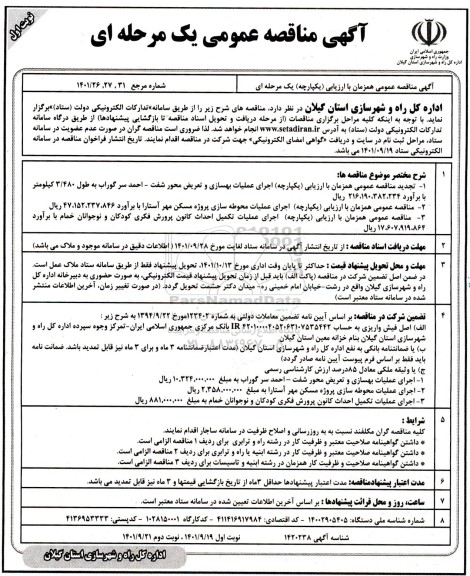 نوبت اول
جمهوری اسلامی ایران
وزارت راه و شهرسازی
اداره کل راه و شهرسازی استان گیلان
آگهی مناقصه عمومی یک مرحله ای
آگهی مناقصه عمومی همزمان با ارزیابی (یکپارچه) یک مرحله ای
شماره مرجع ۳۱ ,۲۷ ,۱۴۰۱/۲۶
اداره کل راه و شهرسازی استان گیلان در نظر دارد، مناقصه های شرح زیر را از طریق سامانه «تدارکات الکترونیکی دولت (ستاد)» برگزار
نماید. با توجه به اینکه کلیه مراحل برگزاری مناقصات (از مرحله دریافت و تحویل اسناد مناقصه تا بازگشایی پیشنهادها) از طریق درگاه سامانه
تدارکات الکترونیکی دولت (ستاد) به آدرس www.setadiran.ir انجام خواهد شد. لذا ضروری است مناقصه گران در صورت عدم عضویت در سامانه
ستاد، مراحل ثبت نام در سایت و دریافت «گواهی امضای الکترونیکی» جهت شرکت در مناقصه اقدام نمایند. تاریخ انتشار فراخوان مناقصه در سامانه
الکترونیکی ستاد ۱۴۰۱/۰۹/۱۹ می باشد.
۱
شرح مختصر موضوع مناقصه ها:
۱- تجدید مناقصه عمومی همزمان با ارزیابی (یکپارچه) اجرای عملیات بهسازی و تعریض محور شفت - احمد سر گوراب به طول ۳/۴۸۰ کیلومتر
با برآورد ۲۱۶,۱۹۰,۳۸۲,۲۳۴ ریال
۲- مناقصه عمومی همزمان با ارزیابی (یکپارچه) اجرای عملیات محوطه سازی پروژه مسکن مهر آستارا با برآورد ۴۷,۱۵۲,۲۳۷,۸۴۶ ریال
۳- مناقصه عمومی همزمان با ارزیابی (یکپارچه) اجرای عملیات تکمیل احداث کانون پرورش فکری کودکان و نوجوانان خمام با برآورد
۱۷,۶۰۷,۹۱۹,۸۶۴ ریال
۲
مهلت دریافت اسناد مناقصه : از تاریخ انتشار آگهی در سامانه ستاد لغایت مورخ ۱۴۰۱/۰۹/۲۸ (اطلاعات دقیق در سامانه موجود و ملاک می باشد)
۳
مهلت و محل تحویل پیشنهاد قیمت : حداکثر تا پایان وقت اداری مورخ ۱۴۰۱/۱۰/۱۳، تحویل پیشنهاد فقط از طریق سامانه ستاد ملاک عمل است.
در ضمن اصل تضمین شرکت در مناقصه (پاکت الف) باید قبل از زمان تحویل پیشنهاد قیمت الکترونیکی، به صورت حضوری به دبیرخانه اداره کل
راه و شهرسازی گیلان واقع در رشت-خیابان امام خمینی ره- میدان دکتر حشمت تحویل گردد. (در صورت تغییر زمان، آخرین اطلاعات منتشر
شده در سامانه ستاد معتبر است)
۴
تضمین شرکت در مناقصه: بر اساس آیین نامه تضمین معاملات دولتی به شماره ۱۲۳۴۰۲ مورخ ۱۳۹۴/۹/۲۲ به شرح زیر :
شهرسازی استان گیلان بنام خزانه معین استان گیلان
ب) یا ضمانتنامه بانکی به نفع اداره کل راه و شهرسازی استان گیلان (مدت اعتبارضمانتنامه ۳ ماه و برای ۳ ماه نیز قابل تمدید باشد. ضمانت نامه
باید فقط بر اساس فرم پیوست آیین نامه صادر گردد)
ج) یا وثیقه ملکی معادل ۸۵درصد ارزش کارشناسی رسمی
۱- اجرای عملیات بهسازی و تعریض محور شفت - احمد سر گوراب به مبلغ ۱۰,۳۲۴,۰۰۰,۰۰۰ ریال
۲- اجرای عملیات محوطه سازی پروژه مسکن مهر آستارا به مبلغ ۲,۳۵۸,۰۰۰,۰۰۰ ریال
۳- اجرای عملیات تکمیل احداث کانون پرورش فکری کودکان و نوجوانان خمام به مبلغ ۸۸۱,۰۰۰,۰۰۰ ریال
۵
شرایط :
کلیه مناقصه گران مکلفند نسبت به به روزرسانی و اصلاح ظرفیت در سامانه ساجار اقدام نمایند.
* داشتن گواهینامه صلاحیت معتبر و ظرفیت کار در رشته راه و ترابری برای ردیف ۱ مناقصه الزامی است.
* داشتن گواهینامه صلاحیت معتبر و ظرفیت کار در رشته ابنیه یا راه و ترابری برای ردیف ۲ مناقصه الزامی است.
* داشتن گواهینامه صلاحیت معتبر و ظرفیت کار همزمان در رشته ابنیه و تاسیسات برای ردیف ۳ مناقصه الزامی است.
۶
مدت اعتبار پیشنهادمناقصه: مدت اعتبار پیشنهادها حداقل ۳ماه از تاریخ بازگشایی قیمتها و ۳ ماه نیز قابل تمدید می باشد.
۷
ساعت، روز و محل قرائت پیشنهادها : بر اساس آخرین اطلاعات تعیین شده در سامانه ستاد معتبر است.
۸
شماره شناسه ملی دستگاه: ۱۴۰۰۲۹۰۵۴۰۵ - کد اقتصادی: ۴۱۱۴۱۶۹۱۷۹۸۴ - کدکارگاه ۱۰۲۸۱۵۰۰۰۱ - کدپستی: ۴۱۳۶۹۵۳۳۳۳
شناسه آگهی ۱۴۲۰۲۳۸
نوبت اول ۱۴۰۱/۹/۱۹ ، نوبت دوم ۱۴۰۱/۹/۲۱
اداره کل راه و شهرسازی استان گیلان